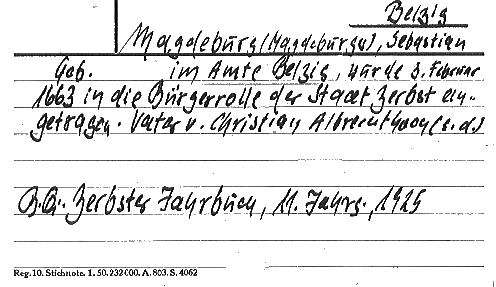 Belzig
Magdeburg (Magdeburger), Sebastian
Geb. im Amte Belzig, wurde 3. Februar
1663 in die Bürgerrolle der Stadt Zerbst ein-
getragen. Vater v. Christian Albrecht (s.d.)
Zerbster Jahrbuch, 11. Jahrg., 1925
Reg. 10. Stichnote. 1. 50. 232 000. A. 803. S. 4062